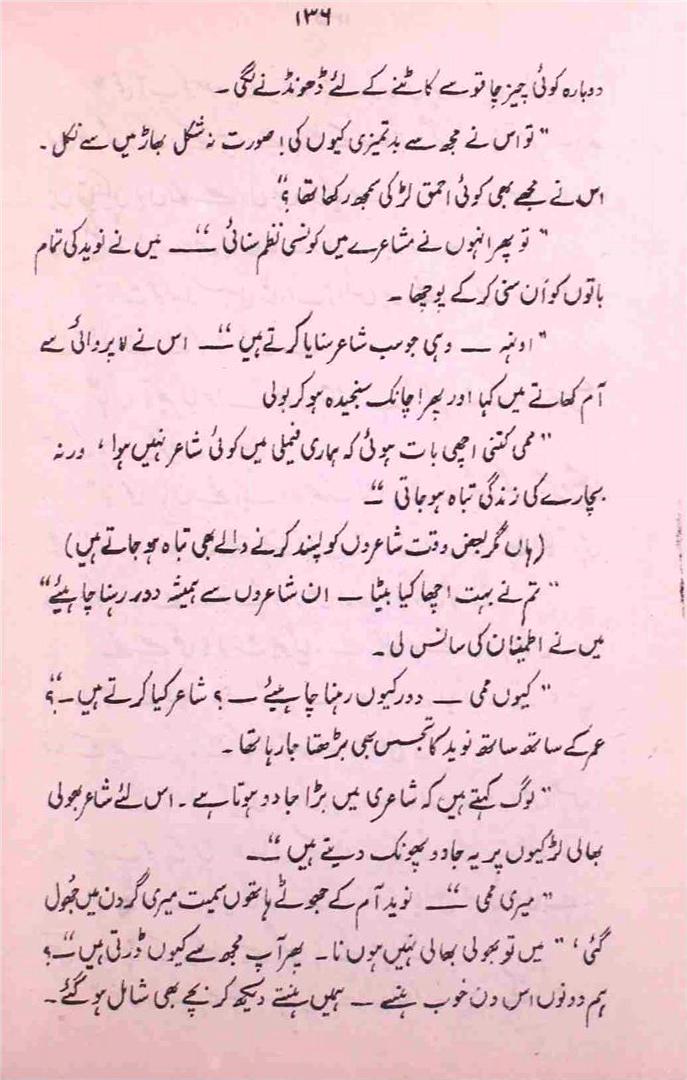 ۱۳۶
دوبارہ کوئی چیز چاقو سے کاٹنے کے لئے ڈھونڈنے لگی۔
"تو اس نے مجھ سے بدتمیزی کیوں کی! صورت نہ شکل بھاڑ میں سے نکل۔
اس نے مجھے بھی کوئی احمق لڑکی سمجھ رکھا تھا؟"
"تو پھر انہوں نے مشاعرے میں کونسی نظم سنائی" — میں نے نوید کی تمام
باتوں کو اَن سنی کر کے پوچھا۔
"اونہہ — وہی جو سب شاعر سنایا کرتے ہیں" — اس نے لاپروائی سے
آم کھاتے میں کہا اور پھر اچانک سنجیدہ ہو کر بولی
"ممی کتنی اچھی بات ہوئی کہ ہماری فیملی میں کوئی شاعر نہیں ہوا، ورنہ
بچارے کی زندگی تباہ ہو جاتی"—
(ہاں مگر بعض وقت شاعروں کو پسند کرنے والے بھی تباہ ہو جاتے ہیں)
"تم نے بہت اچھا کیا بیٹا — ان شاعروں سے ہمیشہ دور رہنا چاہیئے"
میں نے اطمینان کی سانس لی۔
"کیوں ممی — دور کیوں رہنا چاہیئے —؟ شاعر کیا کرتے ہیں—"؟
عمر کے ساتھ ساتھ نوید کا تجسس بھی بڑھتا جا رہا تھا۔
"لوگ کہتے ہیں کہ شاعری میں بڑا جادو ہوتا ہے۔ اس لئے شاعر بھولی
بھالی لڑکیوں پر یہ جادو پھونک دیتے ہیں"—
"میری ممی" — نوید آم کے جھوٹے ہاتھوں سمیت میری گردن میں جھُول
گئی، "میں تو بھولی بھالی نہیں ہوں نا۔ پھر آپ مجھ سے کیوں ڈرتی ہیں"—؟
ہم دونوں اس دن خوب ہنسے — ہمیں ہنستے دیکھ کر بچے بھی شامل ہو گئے۔